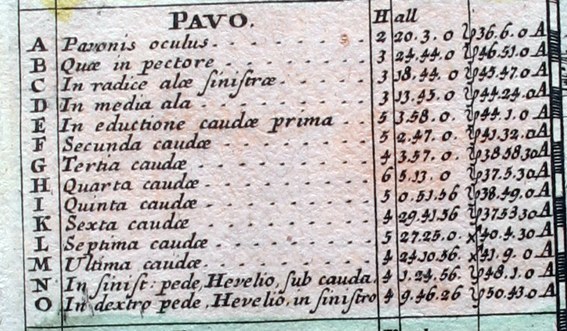 PAVO. Hall
A Pavonis oculus. 2 20.3.0 ♑ 36.6.0 A
B Quæ in pectore 3 24.44.0 ♑ 46.51.0 A
C In radice alæ ſiniſtræ 3 18.44.0 ♑ 45.47.0 A
D In media ala 3 13.45.0 ♑ 44.24.0 A
E In eductione caudæ prima 5 3.58.0. ♑ 44.1.0 A
F Secunda caudæ 5 2.47.0. ♑ 41.32.0 A
G Tertia caudæ 4 3.57.0. ♑ 38.58.30 A
H Quarta caudæ 6 5.13.0 ♑ 37.5.30 A
I Quinta caudæ 5 0.51.56 ♑ 38.49.0 A
K Sexta caudæ 4 29.41.56 37.53.30 A
L Septima caudæ 5 27.25.0. 40.4.30 A
M Ultima caudæ 4 24.10.56 41.9.0 A
N In ſiniſt: pede, Hevelio, ſub cauda. 4 1.24.56 ♑ 48.1.0 A
O In dextro pede, Hevelio, in ſiniſtro 4 9.46.26 ♑ 50.43.0 A